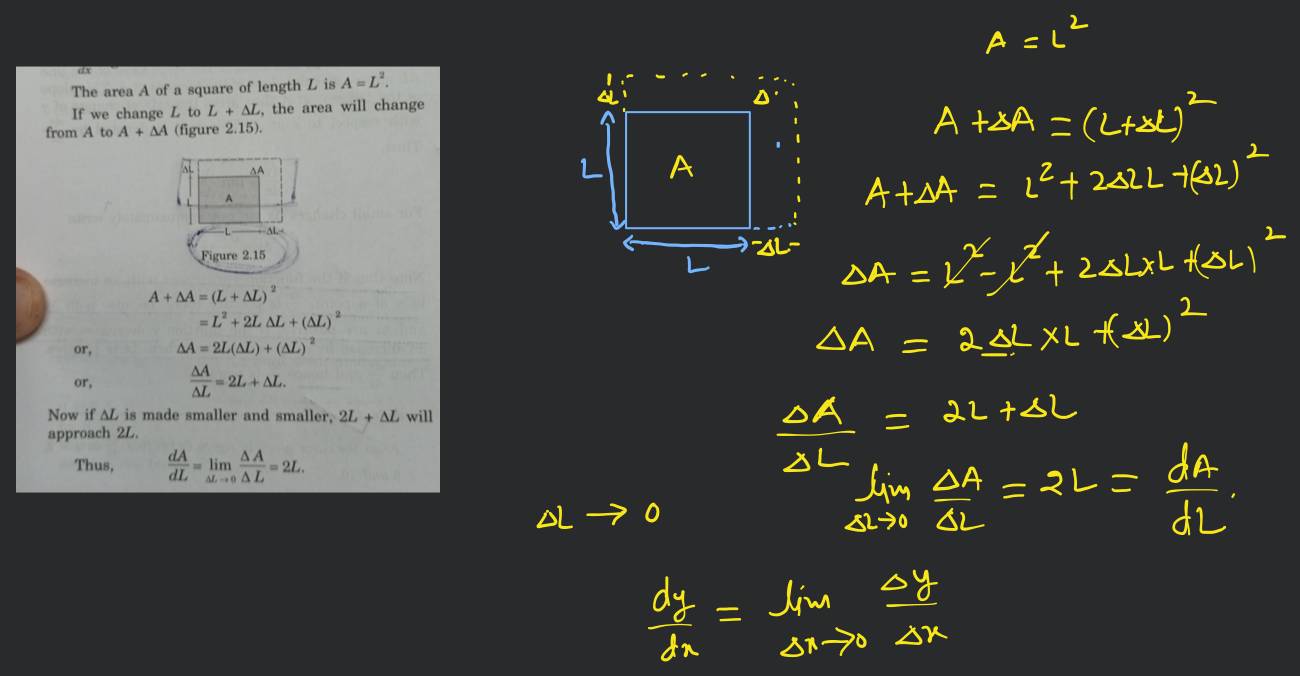 dx
The area A of a square of length L is A = L².
If we change L to L + ΔL, the area will change
from A to A + ΔA (figure 2.15).
ΔL
ΔA
A
L
ΔL
Figure 2.15
A + ΔA = (L + ΔL)²
= L² + 2L ΔL + (ΔL)²
or, ΔA = 2L(ΔL) + (ΔL)²
or, ΔA/ΔL = 2L + ΔL.
Now if ΔL is made smaller and smaller, 2L + ΔL will
approach 2L.
Thus, dA/dL = lim ΔL→0 ΔA/ΔL = 2L.
ΔL
Δ
L
A
-ΔL-
L
A = L²
A + ΔA = (L+ΔL)²
A + ΔA = L² + 2ΔL L + (ΔL)²
ΔA = L² - L² + 2ΔL×L + (ΔL)²
ΔA = 2ΔL × L + (ΔL)²
ΔA/ΔL = 2L + ΔL
lim ΔL→0 ΔA/ΔL = 2L = dA/dL.
ΔL → 0
dy/dx = lim Δx→0 Δy/Δx